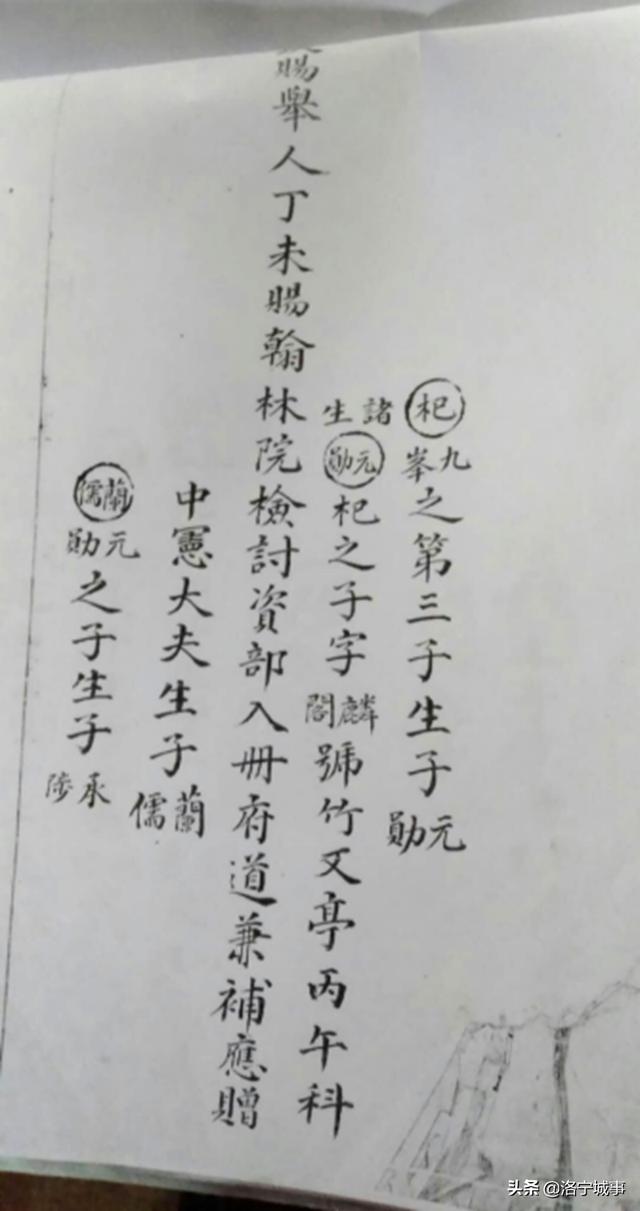 杞九峯之第三子生子元勛
諸生元勛杞之子字麟閣號竹又亭丙午科
賜舉人丁未賜翰林院檢討資部入册府道兼補應贈
中憲大夫生子蘭儒
蘭儒元勛之子生子承陟
头条 @洛宁城事